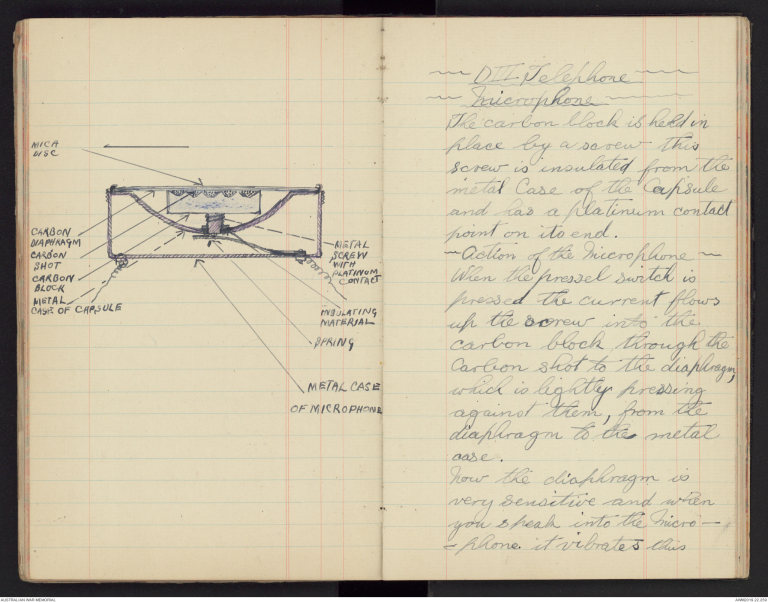 MICA
DISC
CARBON
DIAPHRAGM
CARBON
SHOT
CARBON
BLOCK
METAL
CASE OF CAPSULE
METAL
SCREW
WITH
PLATINUM
CONTACT
INSULATING
MATERIAL
SPRING
METAL CASE
OF MICROPHONE
DIII Telephone
Microphone
The carbon block is held in
place by a screw this
screw is insulated from the
metal Case of the Capsule
and has a platinum contact
point on its end.
Action of the Microphone
When the pressel switch is
pressed the current flows
up the screw into the
carbon block through the
Carbon shot to the diaphragm,
which is lightly pressing
against them, from the
diaphragm to the metal
case.
Now the diaphragm is
very sensitive and when
you speak into the Micro-
-phone it vibrates this
AUSTRALIAN WAR MEMORIAL